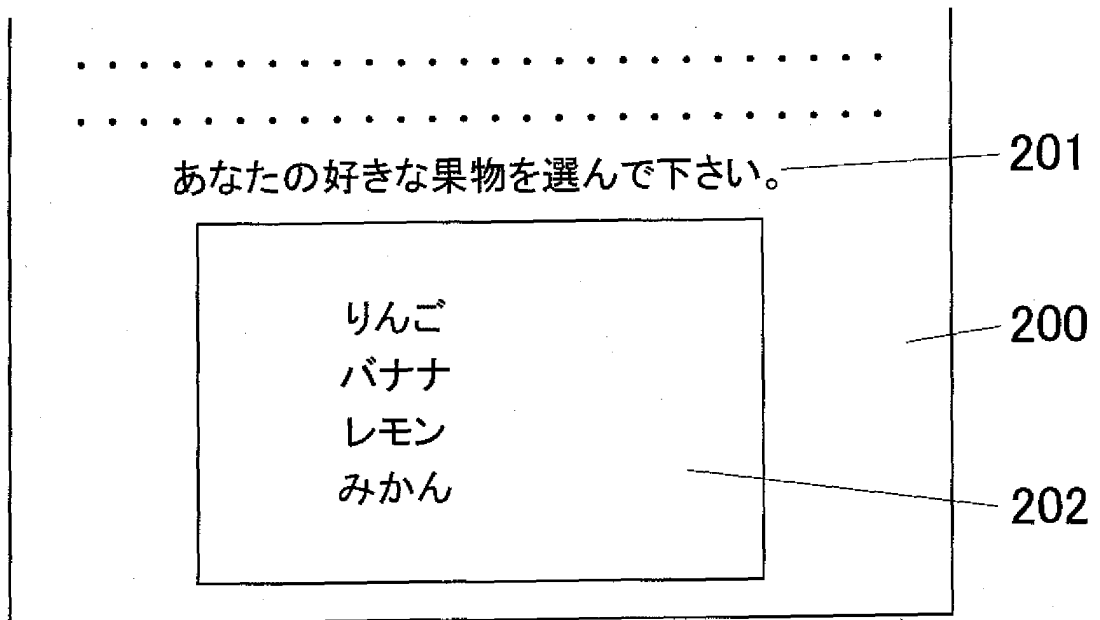 ・・・・・・・・・・・・・・・・・・・・・・・・・・
・・・・・・・・・・・・・・・・・・・・・・・・・・
あなたの好きな果物を選んで下さい。
201
りんご
200
バナナ
レモン
みかん
202